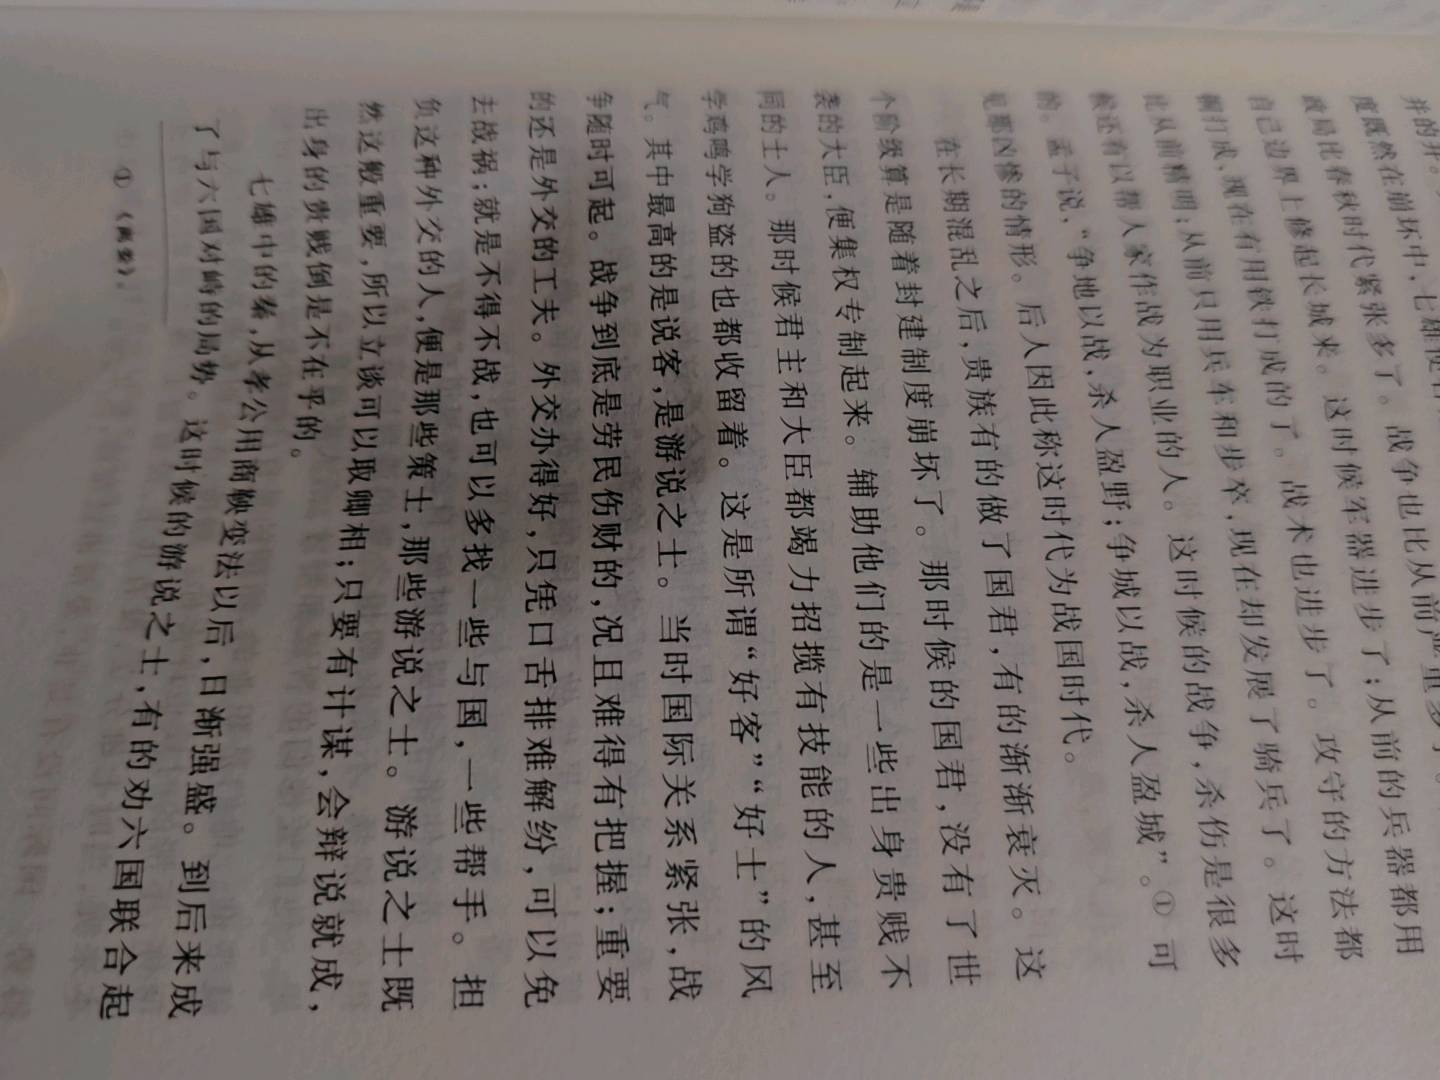 井的井。
度既然在崩坏中,七雄便各
战局比春秋时代紧张多了。战争也比从前严重多了。
自己边界上修起长城来。这时候军器进步了;从前的兵器都用
铜打成,现在有用铁打成的了。战术也进步了。攻守的方法都
比从前精明;从前只用兵车和步卒,现在却发展了骑兵了。这时
候还有以帮人家作战为职业的人。这时候的战争,杀伤是很多
的。孟子说,“争地以战,杀人盈野;争城以战,杀人盈城”。①可
见那凶惨的情形。后人因此称这时代为战国时代。
在长期混乱之后,贵族有的做了国君,有的渐渐衰灭。这
个阶级算是随着封建制度崩坏了。那时候的国君,没有了世
袭的大臣,便集权专制起来。辅助他们的是一些出身贵贱不
同的士人。那时候君主和大臣都竭力招揽有技能的人,甚至
学鸡鸣学狗盗的也都收留着。这是所谓“好客”“好士”的风
气。其中最高的是说客,是游说之士。当时国际关系紧张,战
争随时可起。战争到底是劳民伤财的,况且难得有把握;重要
的还是外交的工夫。外交办得好,只凭口舌排难解纷,可以免
去战祸;就是不得不战,也可以多找一些与国,一些帮手。担
负这种外交的人,便是那些策士,那些游说之士。游说之士既
然这般重要,所以立谈可以取卿相;只要有计谋,会辩说就成,
出身的贵贱倒是不在乎的。
七雄中的秦,从孝公用商鞅变法以后,日渐强盛。到后来成
了与六国对峙的局势。这时候的游说之士,有的劝六国联合起
①《离娄》。